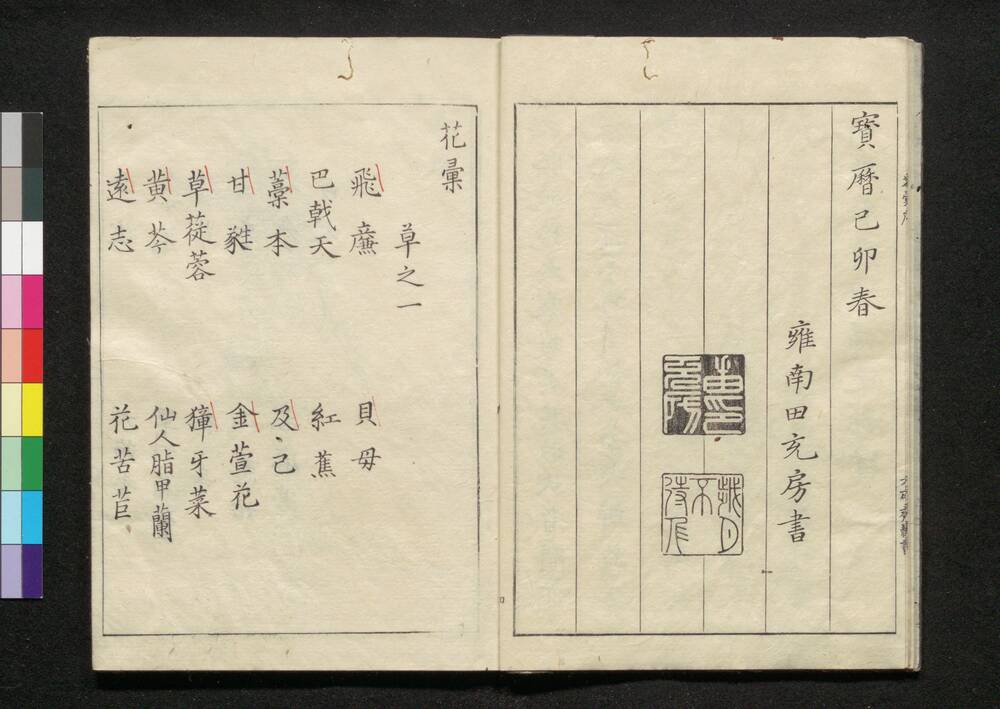 寶曆己卯春
雍南田充房書
花彙
草之一
飛廉
貝母
巴戟天
紅蕉
藁本
及己
甘㽔
金萱花
草蓯蓉
獐牙菜
黄芩
仙人脂甲蘭
遠志
花苦苣